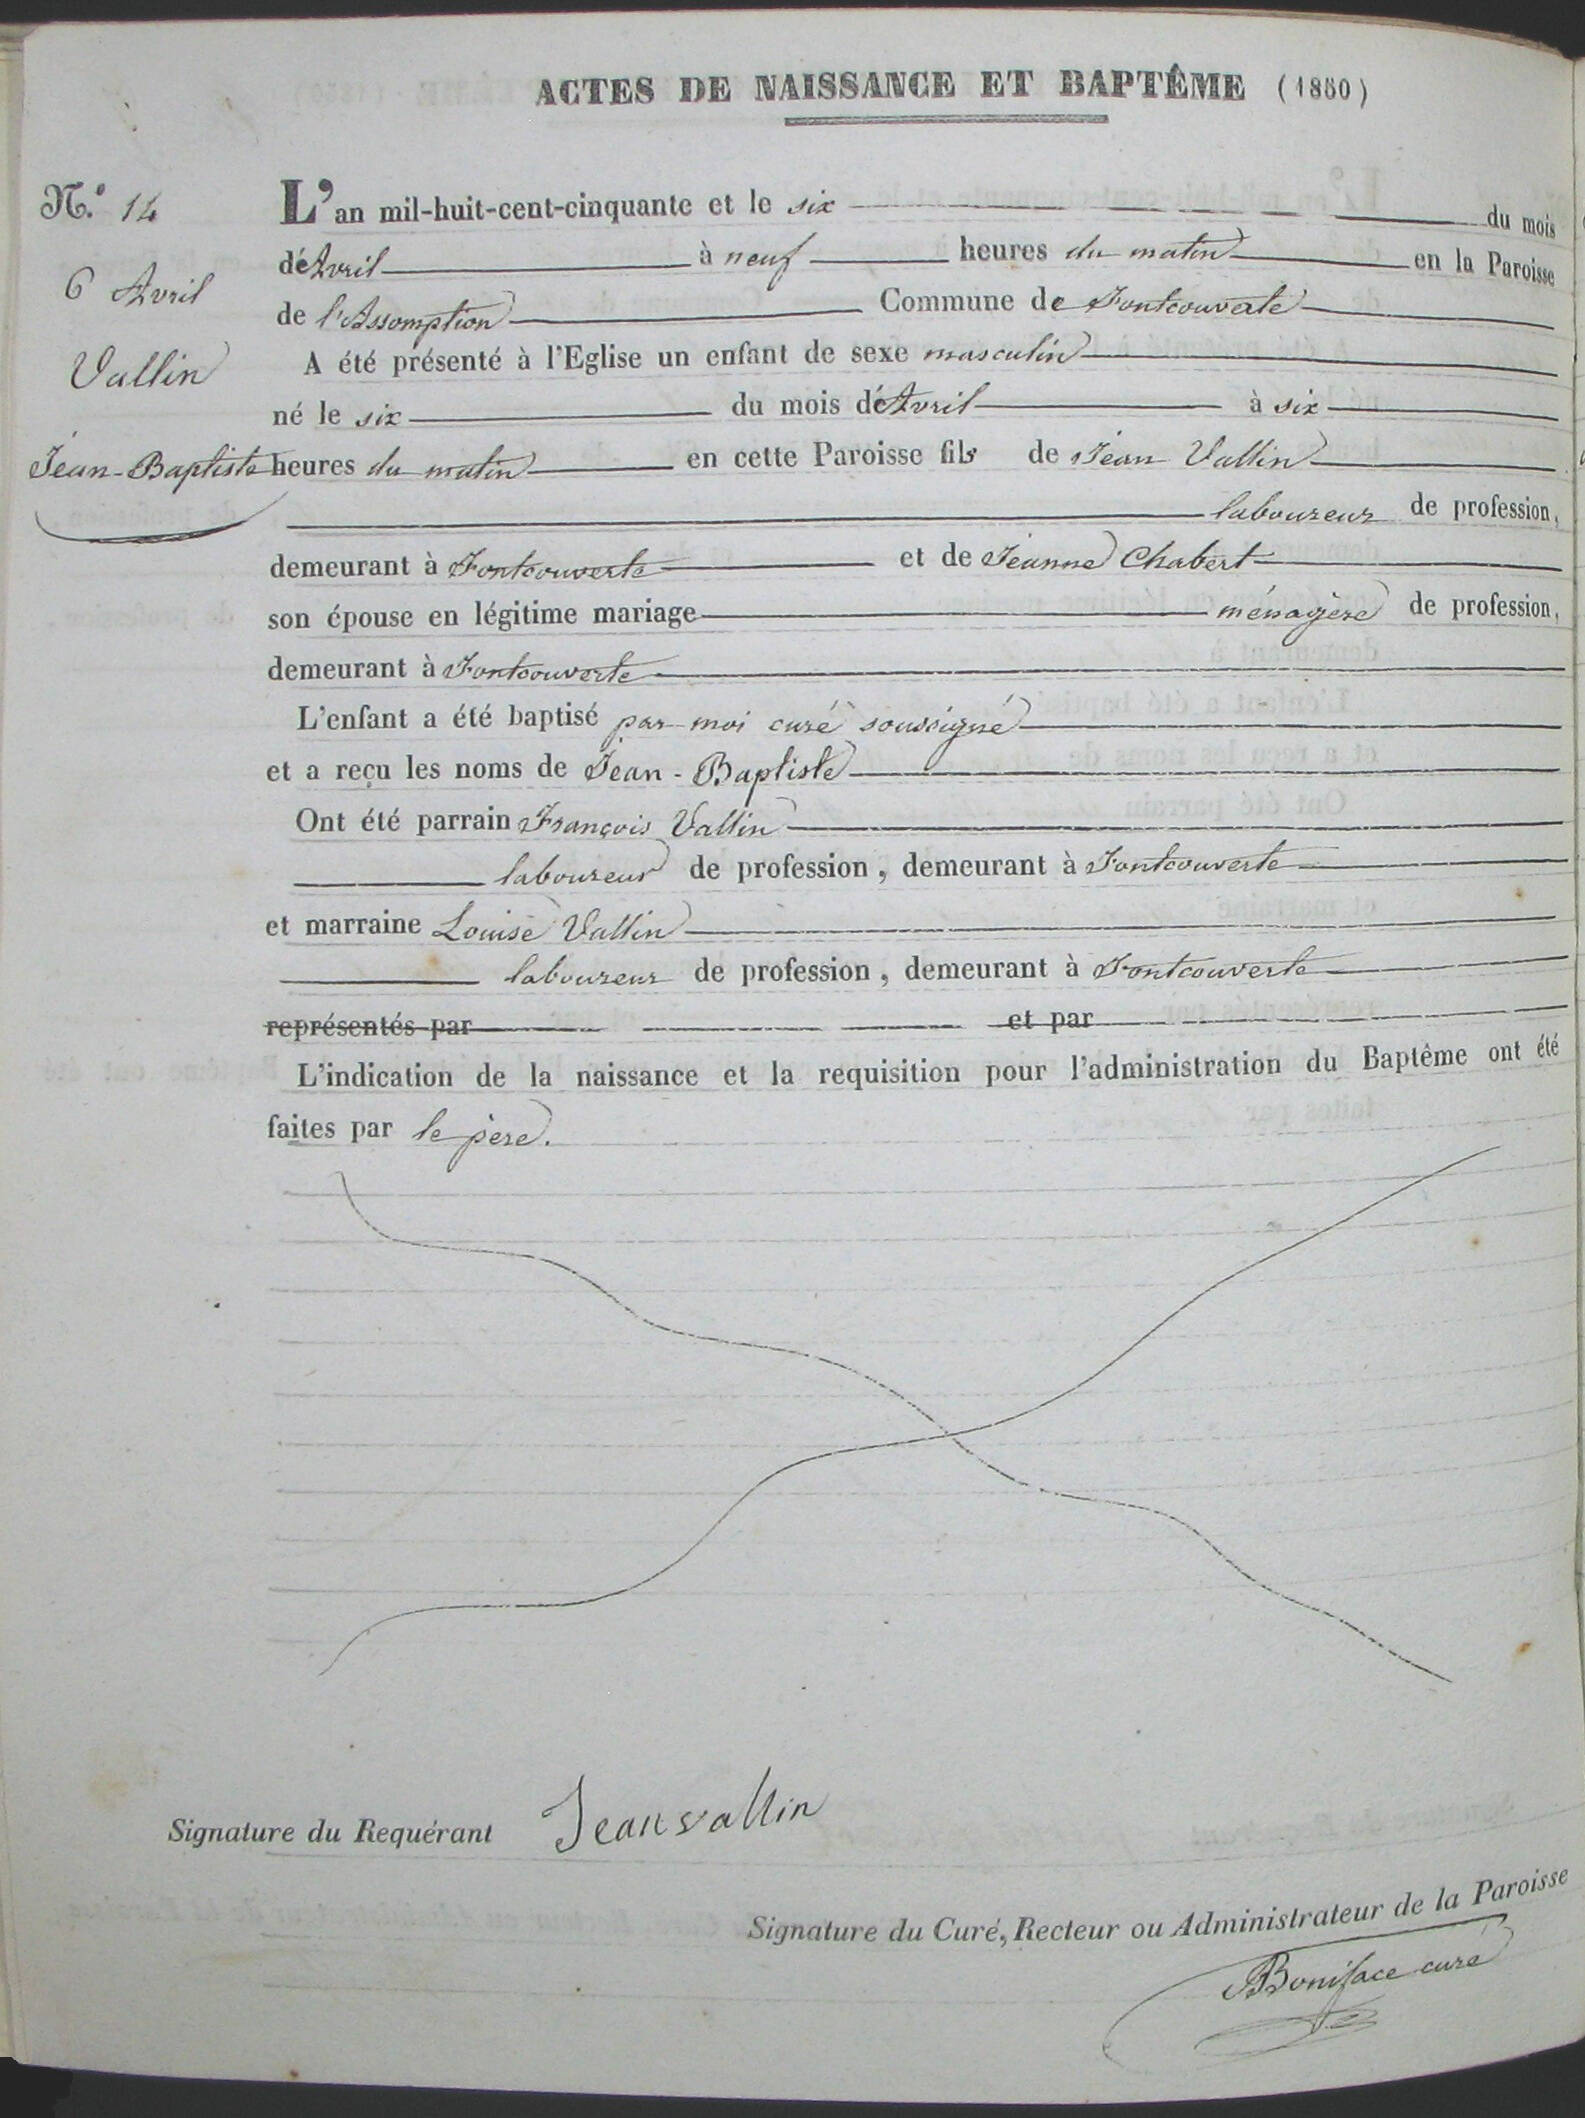 ACTES DE NAISSANCE ET BAPTÊME (1850)
N.° 14
L'an mil-huit-cent-cinquante et le six du mois
d'Avril à neuf heures du matin en la Paroisse
6 Avril
de l'Assomption Commune de Fontcouverte
Vallin
A été présenté à l'Eglise un enfant de sexe masculin
né le six du mois d'Avril à six
Jean-Baptiste
heures du matin en cette Paroisse fils de Jean Vallin
laboureur de profession,
demeurant à Fontcouverte et de Jeanne Chabert
son épouse en légitime mariage ménagère de profession,
demeurant à Fontcouverte
L'enfant a été baptisé par moi curé soussigné
et a reçu les noms de Jean-Baptiste
Ont été parrain François Vallin
laboureur de profession, demeurant à Fontcouverte
et marraine Louise Vallin
laboureur de profession, demeurant à Fontcouverte
représentés par et par
L'indication de la naissance et la requisition pour l'administration du Baptême ont été
faites par le père.
Signature du Requérant Jean vallin
Signature du Curé, Recteur ou Administrateur de la Paroisse
Boniface curé